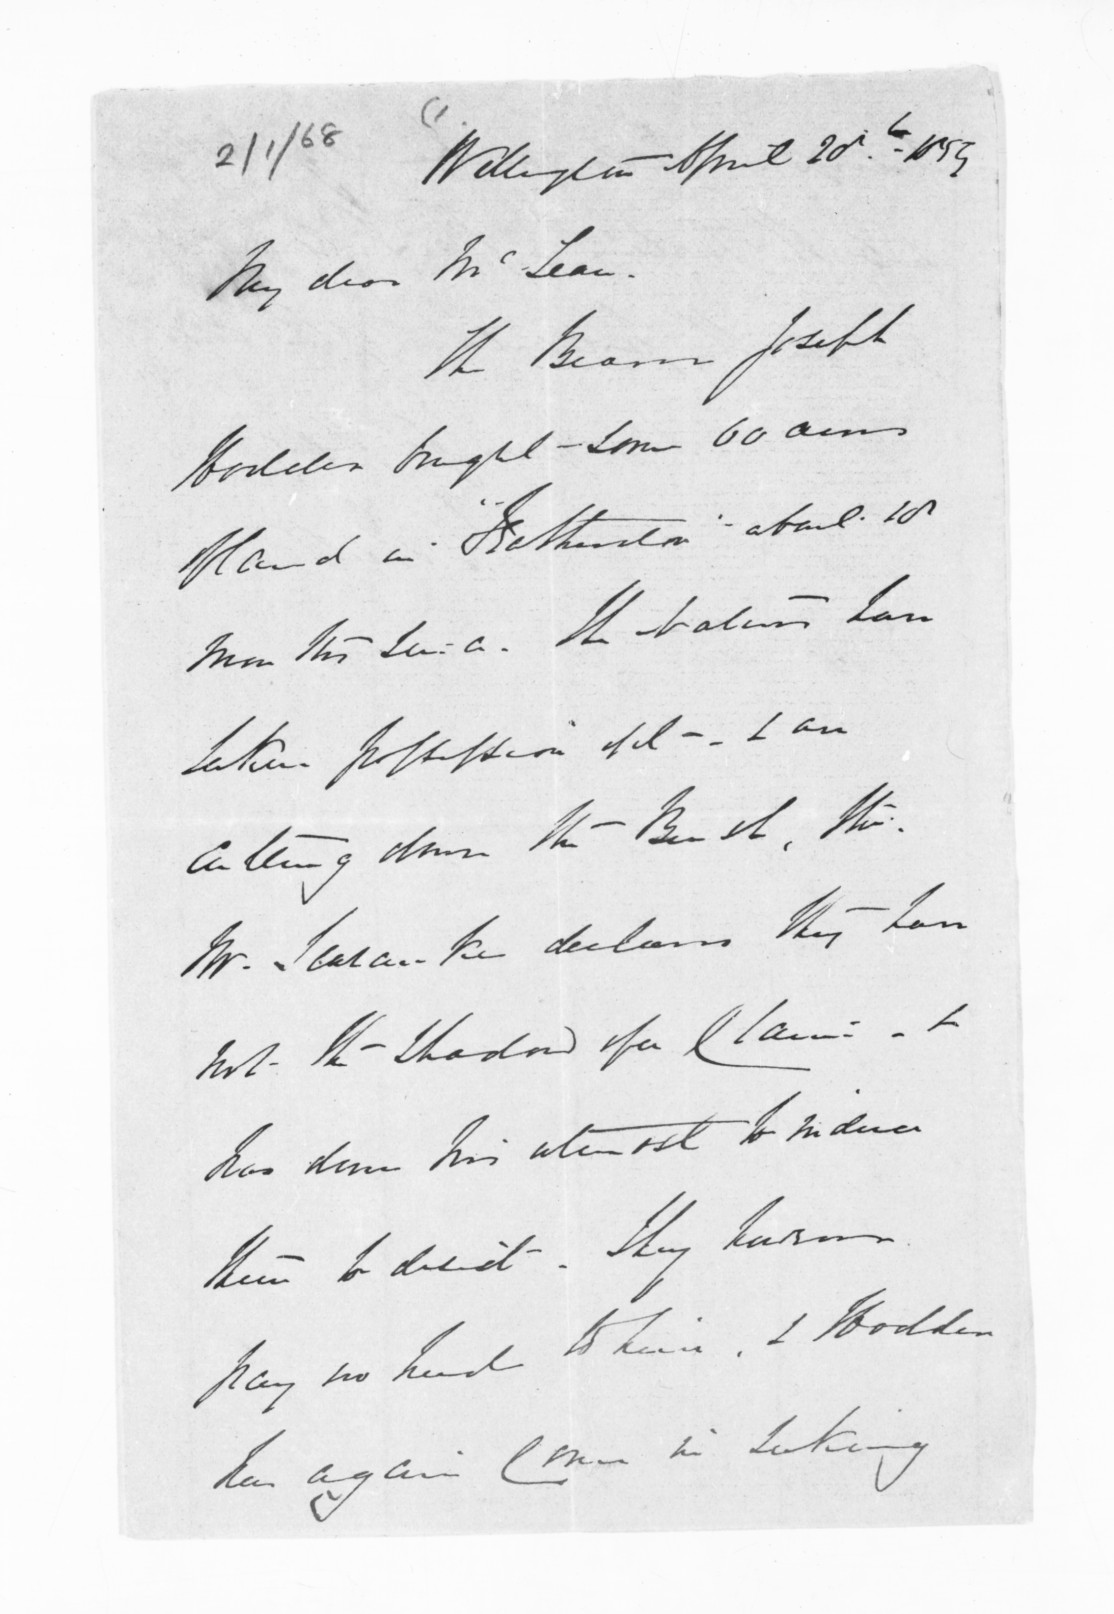 2/1/68
(1.
Wellington April 28th 1859
My dear McLean.
The Bearer Joseph
Hodder bought some 60 acres
of land in "Featherston" about 18
months since. The Natives have
taken possession of it - & are
cutting down the Bush, tho'
Mr. declares they have
not the shadow of a Claim - &
has done his utmost to induce
them to desist. They however
pay no heed to him, & Hodder
has again Come in seeking